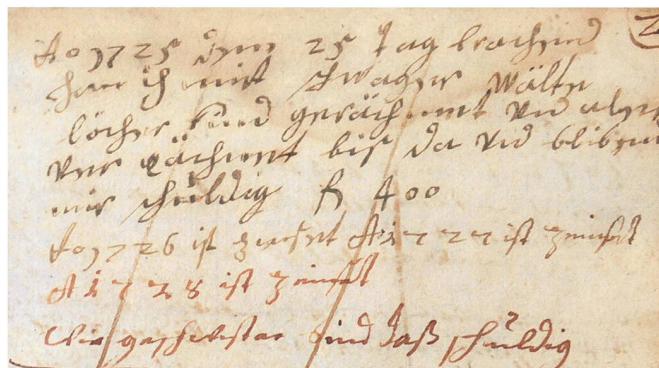 Ao 1725 dem 25 tag brachend
han ich mit schwager wälte
löcher sind gerächnet und als
ver rächnet bis da und bliben
mir schuldig fl 400
Ao 1726 ist zeinset A 1727 ist zeinset
A 1728 ist zeinset
wir geschwister sind daß schuldig